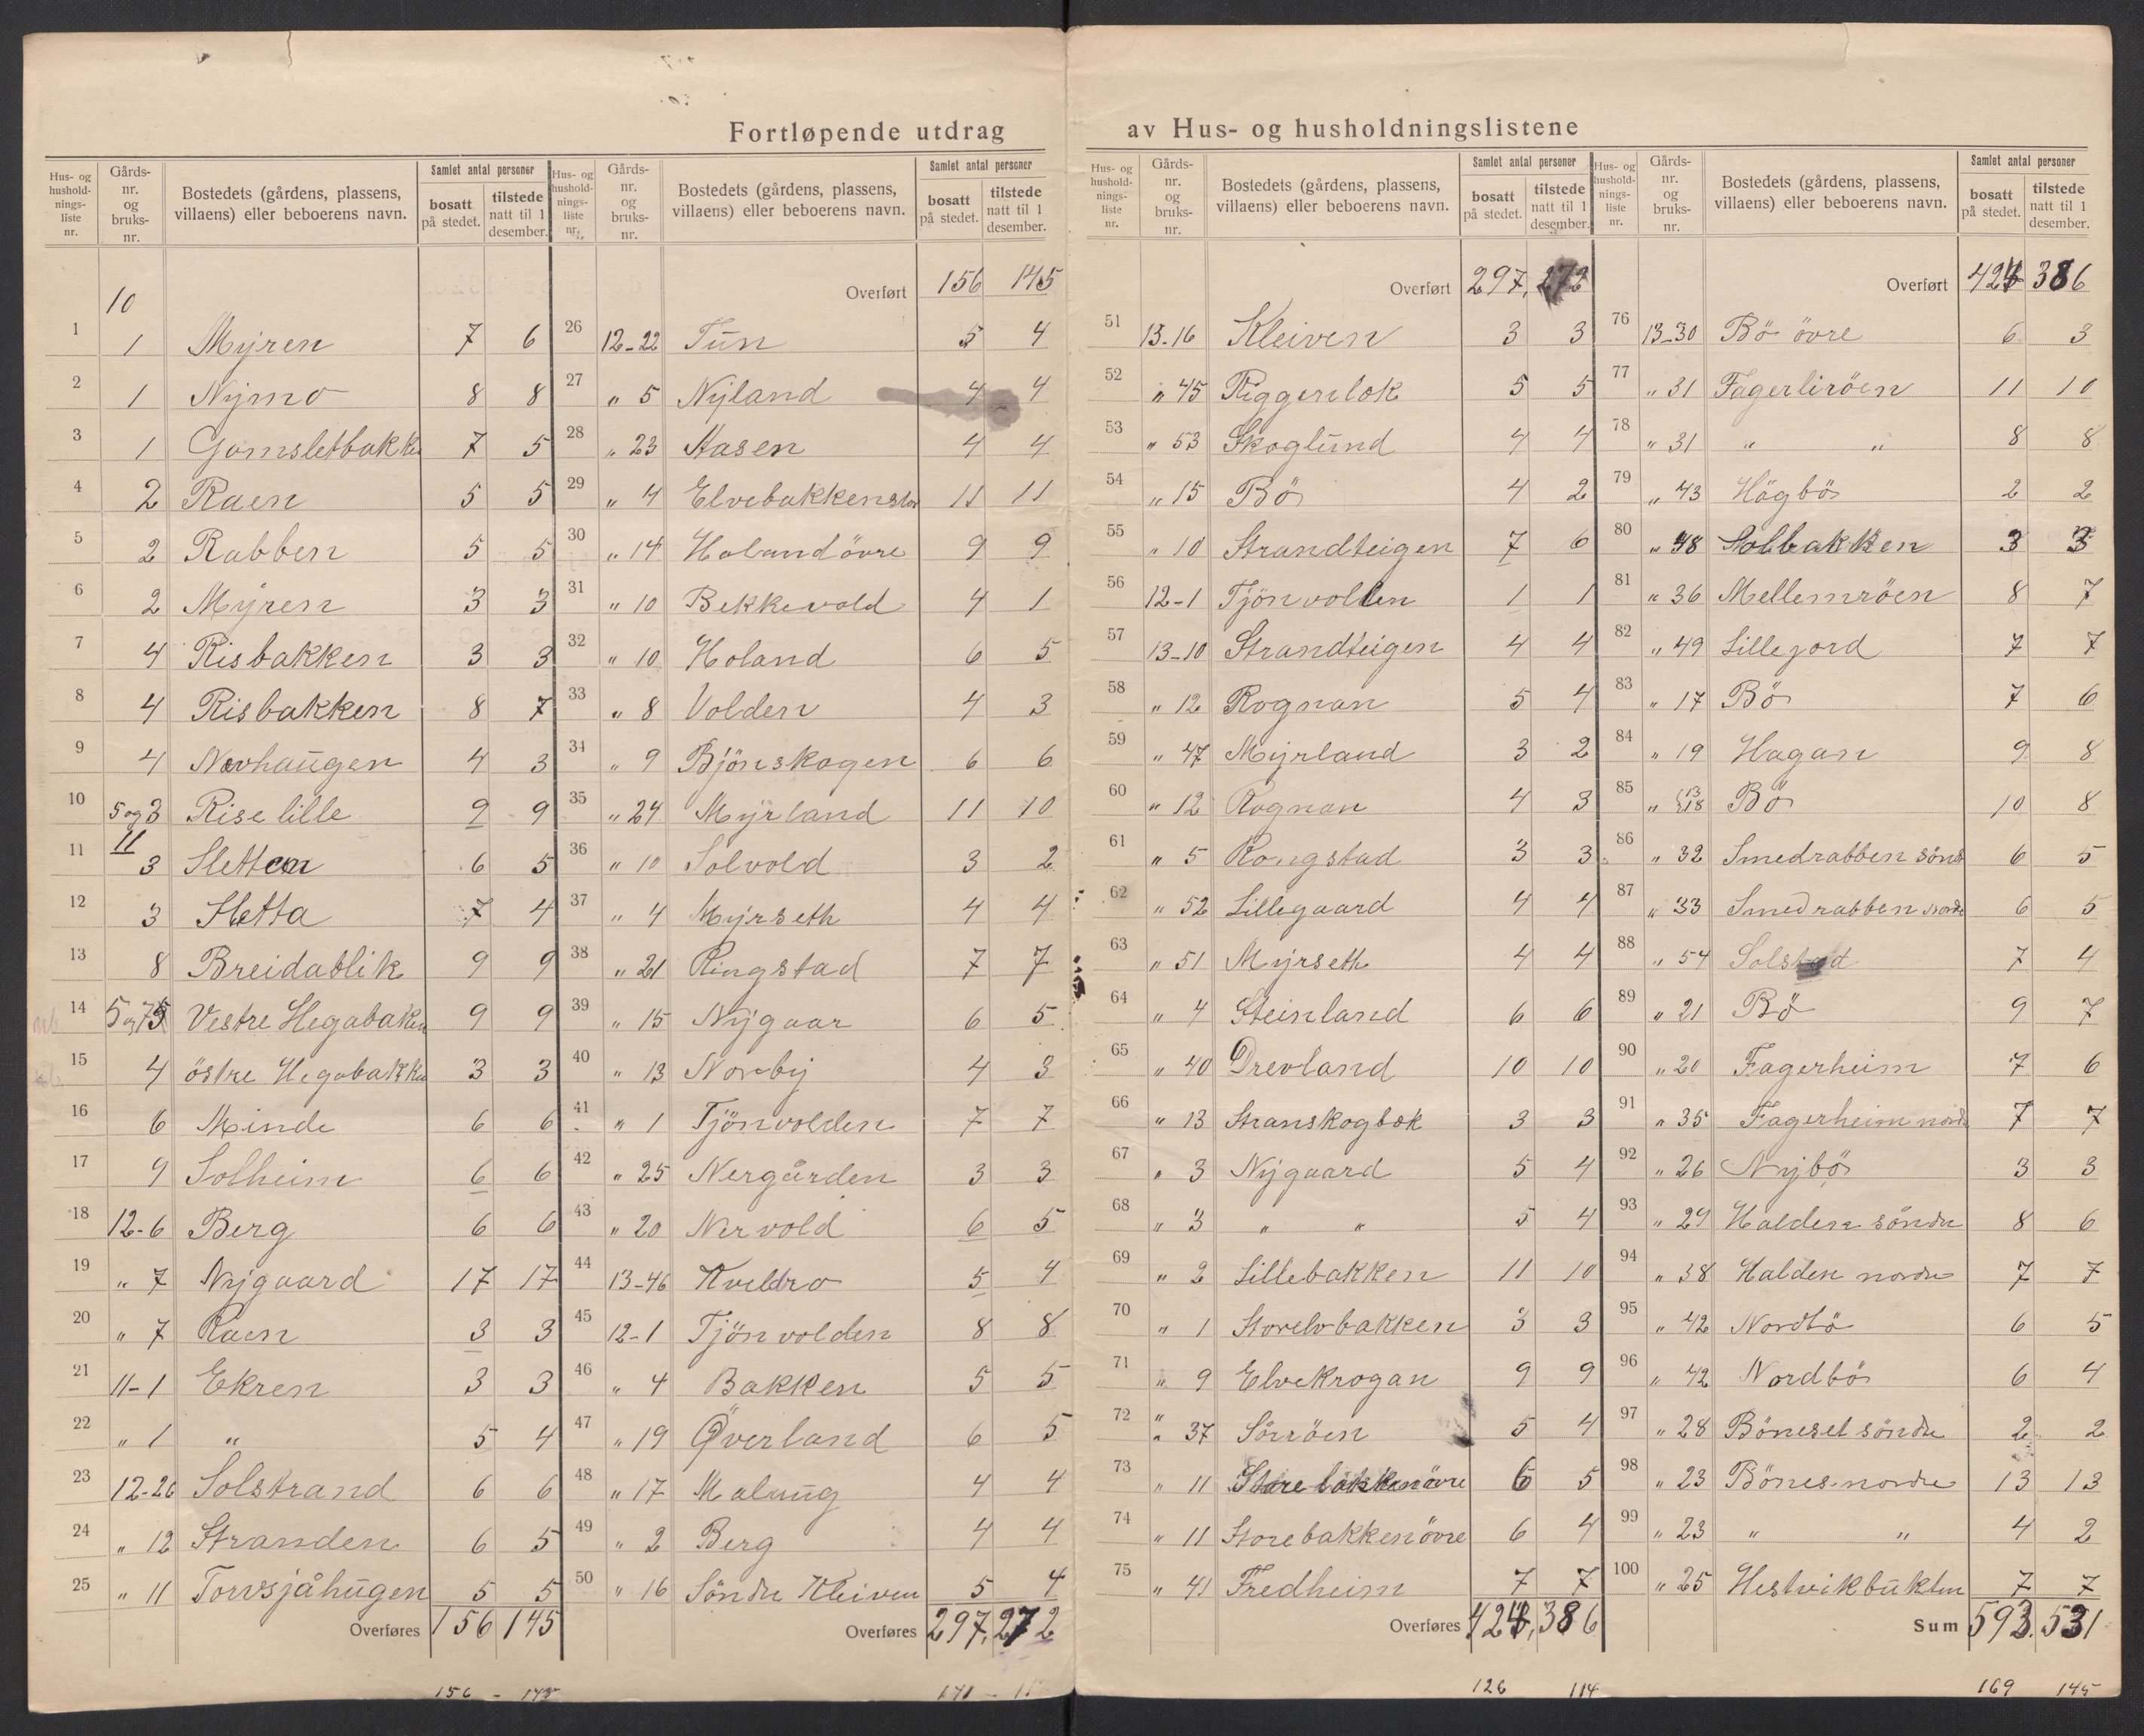 Fortløpende utdrag av Hus- og husholdningslistene
Hus- og husholdningsliste nr. Gårds-nr. og bruks-nr. Bostedets (gårdens, plassens, villaens) eller beboerens navn. Samlet antal personer bosatt på stedet. tilstede natt til 1 desember.
10
1 1 Myren 7 6
2 1 Nymo 8 8
3 1 Gamsletbakke 7 5
4 2 Raen 5 5
5 2 Rabben 5 5
6 2 Myren 3 3
7 4 Risbakken 3 3
8 4 Risbakken 8 7
9 4 Navhaugen 4 3
10 5 og 3 Rise lille 9 9
11
11 3 Sletten 6 5
12 3 Sletta 7 4
13 8 Breidablik 9 9
14 5 og 7 Vestre Hegabaken 9 9
15 4 östre Hegabakke 3 3
16 6 Minde 6 6
17 9 Solheim 6 6
18 12-6 Berg 6 6
19 " 7 Nygaard 17 17
20 " 7 Raen 3 3
21 11-1 Ekren 3 3
22 " 1 " 5 4
23 12-26 Solstrand 6 6
24 " 12 Stranden 6 5
25 " 11 Torvsjåhugen 5 5
Overføres 156 145
156 - 145
Hus- og husholdningsliste nr. Gårds-nr. og bruks-nr. Bostedets (gårdens, plassens, villaens) eller beboerens navn. Samlet antal personer bosatt på stedet. tilstede natt til 1 desember.
Overført 156 145
26 12-22 Tun 5 4
27 " 5 Nyland 4 4
28 " 23 Aasen 4 4
29 " 4 Elvebakkenstor 11 11
30 " 14 Holand övre 9 9
31 " 10 Bekkevold 4 1
32 " 10 Holand 6 5
33 " 8 Volden 4 3
34 " 9 Bjönskogen 6 6
35 " 24 Myrland 11 10
36 " 10 Solvold 3 2
37 " 4 Myrseth 4 4
38 " 21 Ringstad 7 7
39 " 15 Nygaar 6 5
40 " 13 Norby 4 3
41 " 1 Tjönvolden 7 7
42 " 25 Nergården 3 3
43 " 20 Nervold 6 5
44 13-46 Kveldro 5 4
45 12-1 Tjönvolden 8 8
46 " 4 Bakken 5 5
47 " 19 Øverland 6 5
48 " 17 Malung 4 4
49 " 2 Berg 4 4
50 " 16 Söndre Kleiven 5 4
Overføres 297, 272
Hus- og husholdningsliste nr. Gårds-nr. og bruks-nr. Bostedets (gårdens, plassens, villaens) eller beboerens navn. Samlet antal personer bosatt på stedet. tilstede natt til 1 desember.
Overført 297, 272
51 13-16 Kleiven 3 3
52 " 45 Riggerbok 5 5
53 " 53 Skoglund 4 4
54 " 15 Bö 4 2
55 " 10 Strandteigen 7 6
56 12-1 Tjönvollen 1 1
57 13-10 Strandteigen 4 4
58 " 12 Rognan 5 4
59 " 47 Myrland 3 2
60 " 12 Rognan 4 3
61 " 5 Rongstad 3 3
62 " 52 Lillegaard 4 4
63 " 51 Myrseth 4 4
64 " 4 Steinland 6 6
65 " 40 Drevland 10 10
66 " 13 Stranskogbok 3 3
67 " 3 Nygaard 5 4
68 " 3 " " 5 4
69 " 2 Lillebakken 11 10
70 " 1 Storelvbakken 3 3
71 " 9 Elvekrogan 9 9
72 " 37 Sörröen 5 4
73 " 11 Storebakkenövre 6 5
74 " 11 Storebakkenövre 6 4
75 " 41 Fredheim 7 7
Overføres 424, 386
126 114
Hus- og husholdningsliste nr. Gårds-nr. og bruks-nr. Bostedets (gårdens, plassens, villaens) eller beboerens navn. Samlet antal personer bosatt på stedet. tilstede natt til 1 desember.
Overført 424 386
76 13-30 Bö övre 6 3
77 " 31 Fagerliröen 11 10
78 " 31 " " 8 8
79 " 43 Högbö 2 2
80 " 48 Solbakken 3 3
81 " 36 Mellemröen 8 7
82 " 49 Lillejord 7 7
83 " 17 Bö 7 6
84 " 19 Hagan 9 8
85 " 13 18 Bö 10 8
86 " 32 Smedrabben sönd 6 5
87 " 33 Smedrabben nordre 6 5
88 " 54 Solstad 7 4
89 " 21 Bö 9 7
90 " 20 Fagerheim 7 6
91 " 35 Fagerheim nordr 7 7
92 " 26 Nybö 3 3
93 " 29 Halden söndre 8 6
94 " 38 Halden nordre 7 7
95 " 42 Nordbö 6 5
96 " 42 Nordbö 6 4
97 " 28 Böneset söndre 2 2
98 " 23 Bönes nordre 13 13
99 " 23 " " 4 2
100 " 25 Hestvikbukten 7 7
Sum 593. 531
169 145